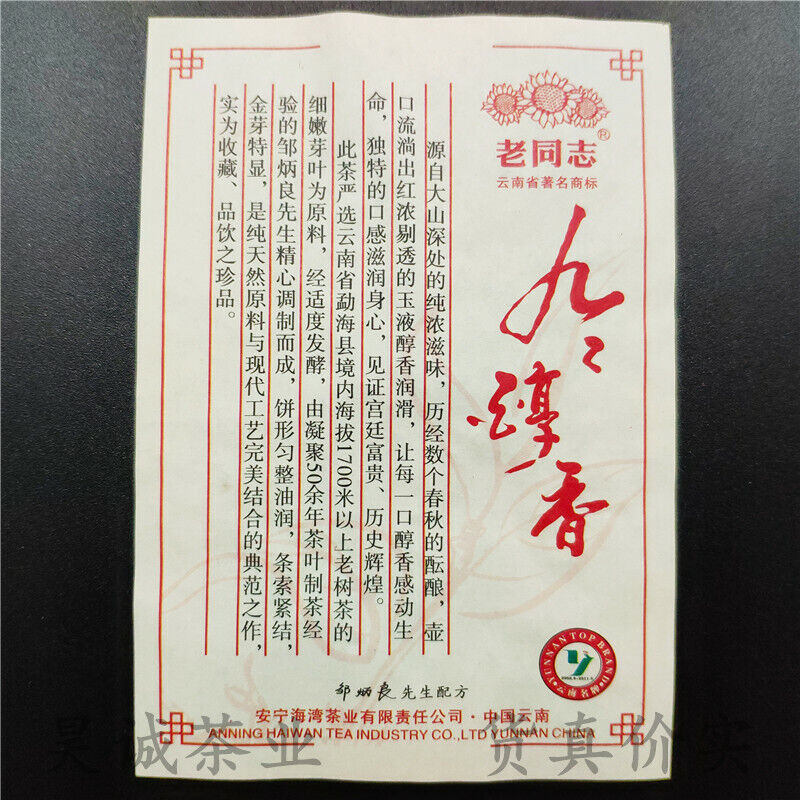 老同志
®
云南省著名商标
九二醇香
源自大山深处的纯浓滋味，历经数个春秋的酝酿，壶
口流淌出红浓剔透的玉液醇香润滑，让每一口醇香感动生
命，独特的口感滋润身心，见证宫廷富贵、历史辉煌。
此茶严选云南省勐海县境内海拔1700米以上老树茶的
细嫩芽叶为原料，经适度发酵，由凝聚50余年茶叶制茶经
验的邹炳良先生精心调制而成，饼形匀整油润，条索紧结，
金芽特显，是纯天然原料与现代工艺完美结合的典范之作，
实为收藏、品饮之珍品。
YUNNAN TOP BRAND
邹炳良先生配方
安宁海湾茶业有限责任公司·中国云南
ANNING HAIWAN TEA INDUSTRY CO.,LTD YUNNAN CHINA
昊诚茶业 货真价实